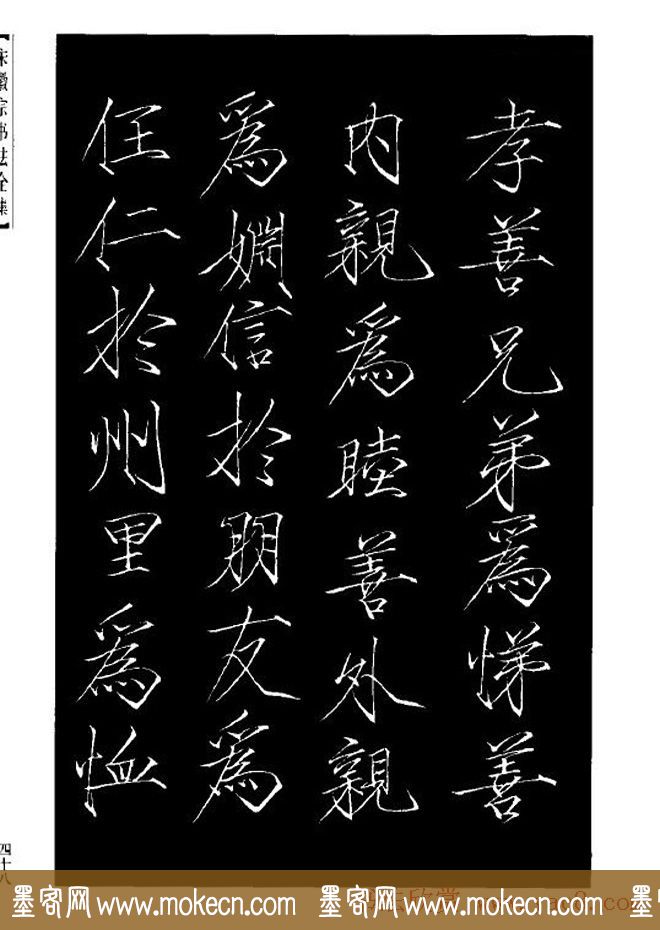 孝善兄弟爲悌善
内親爲睦善外親
爲婣信於朋友爲
任仁於州里爲恤
【宋徽宗书法全集】
四十八
墨客网 www.mokecn.com 墨客网 www.mokecn.com